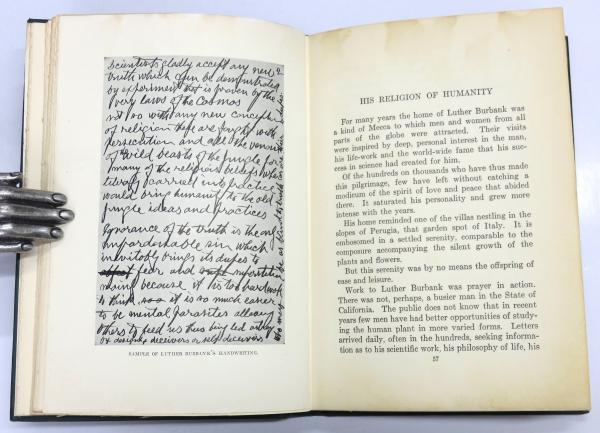 Scientists gladly accept any new
truth which can be demonstrated
by experiment that is proven by the
very laws of the Cosmos
not so with any new conception
of religion these are fought with
persecution and all the venom
of wild beasts of the jungle for
many of the religious beliefs when
carried into practice
would bring humanity to the old
jungle ideas and practices
Ignorance of the truth is the only
unpardonable sin which
inevitably brings its dupes to
fear and superstition
because it is too hard work
to think, it is so much easier
to be mental parasites allowing
others to feed us thus being led
deceivers or self deceivers
SAMPLE OF LUTHER BURBANK'S HANDWRITING.
HIS RELIGION OF HUMANITY
For many years the home of Luther Burbank was
a kind of Mecca to which men and women from all
parts of the globe were attracted. Their visits
were inspired by deep, personal interest in the man,
his life-work and the world-wide fame that his suc-
cess in science had created for him.
Of the hundreds on thousands who have thus made
this pilgrimage, few have left without catching a
modicum of the spirit of love and peace that abided
there. It saturated his personality and grew more
intense with the years.
His home reminded one of the villas nestling in the
slopes of Perugia, that garden spot of Italy. It is
embosomed in a settled serenity, comparable to the
composure accompanying the silent growth of the
plants and flowers.
But this serenity was by no means the offspring of
ease and leisure.
Work to Luther Burbank was prayer in action.
There was not, perhaps, a busier man in the State of
California. The public does not know that in recent
years few men have had better opportunities of study-
ing the human plant in more varied forms. Letters
arrived daily, often in the hundreds, seeking informa-
tion as to his scientific work, his philosophy of life, his
57